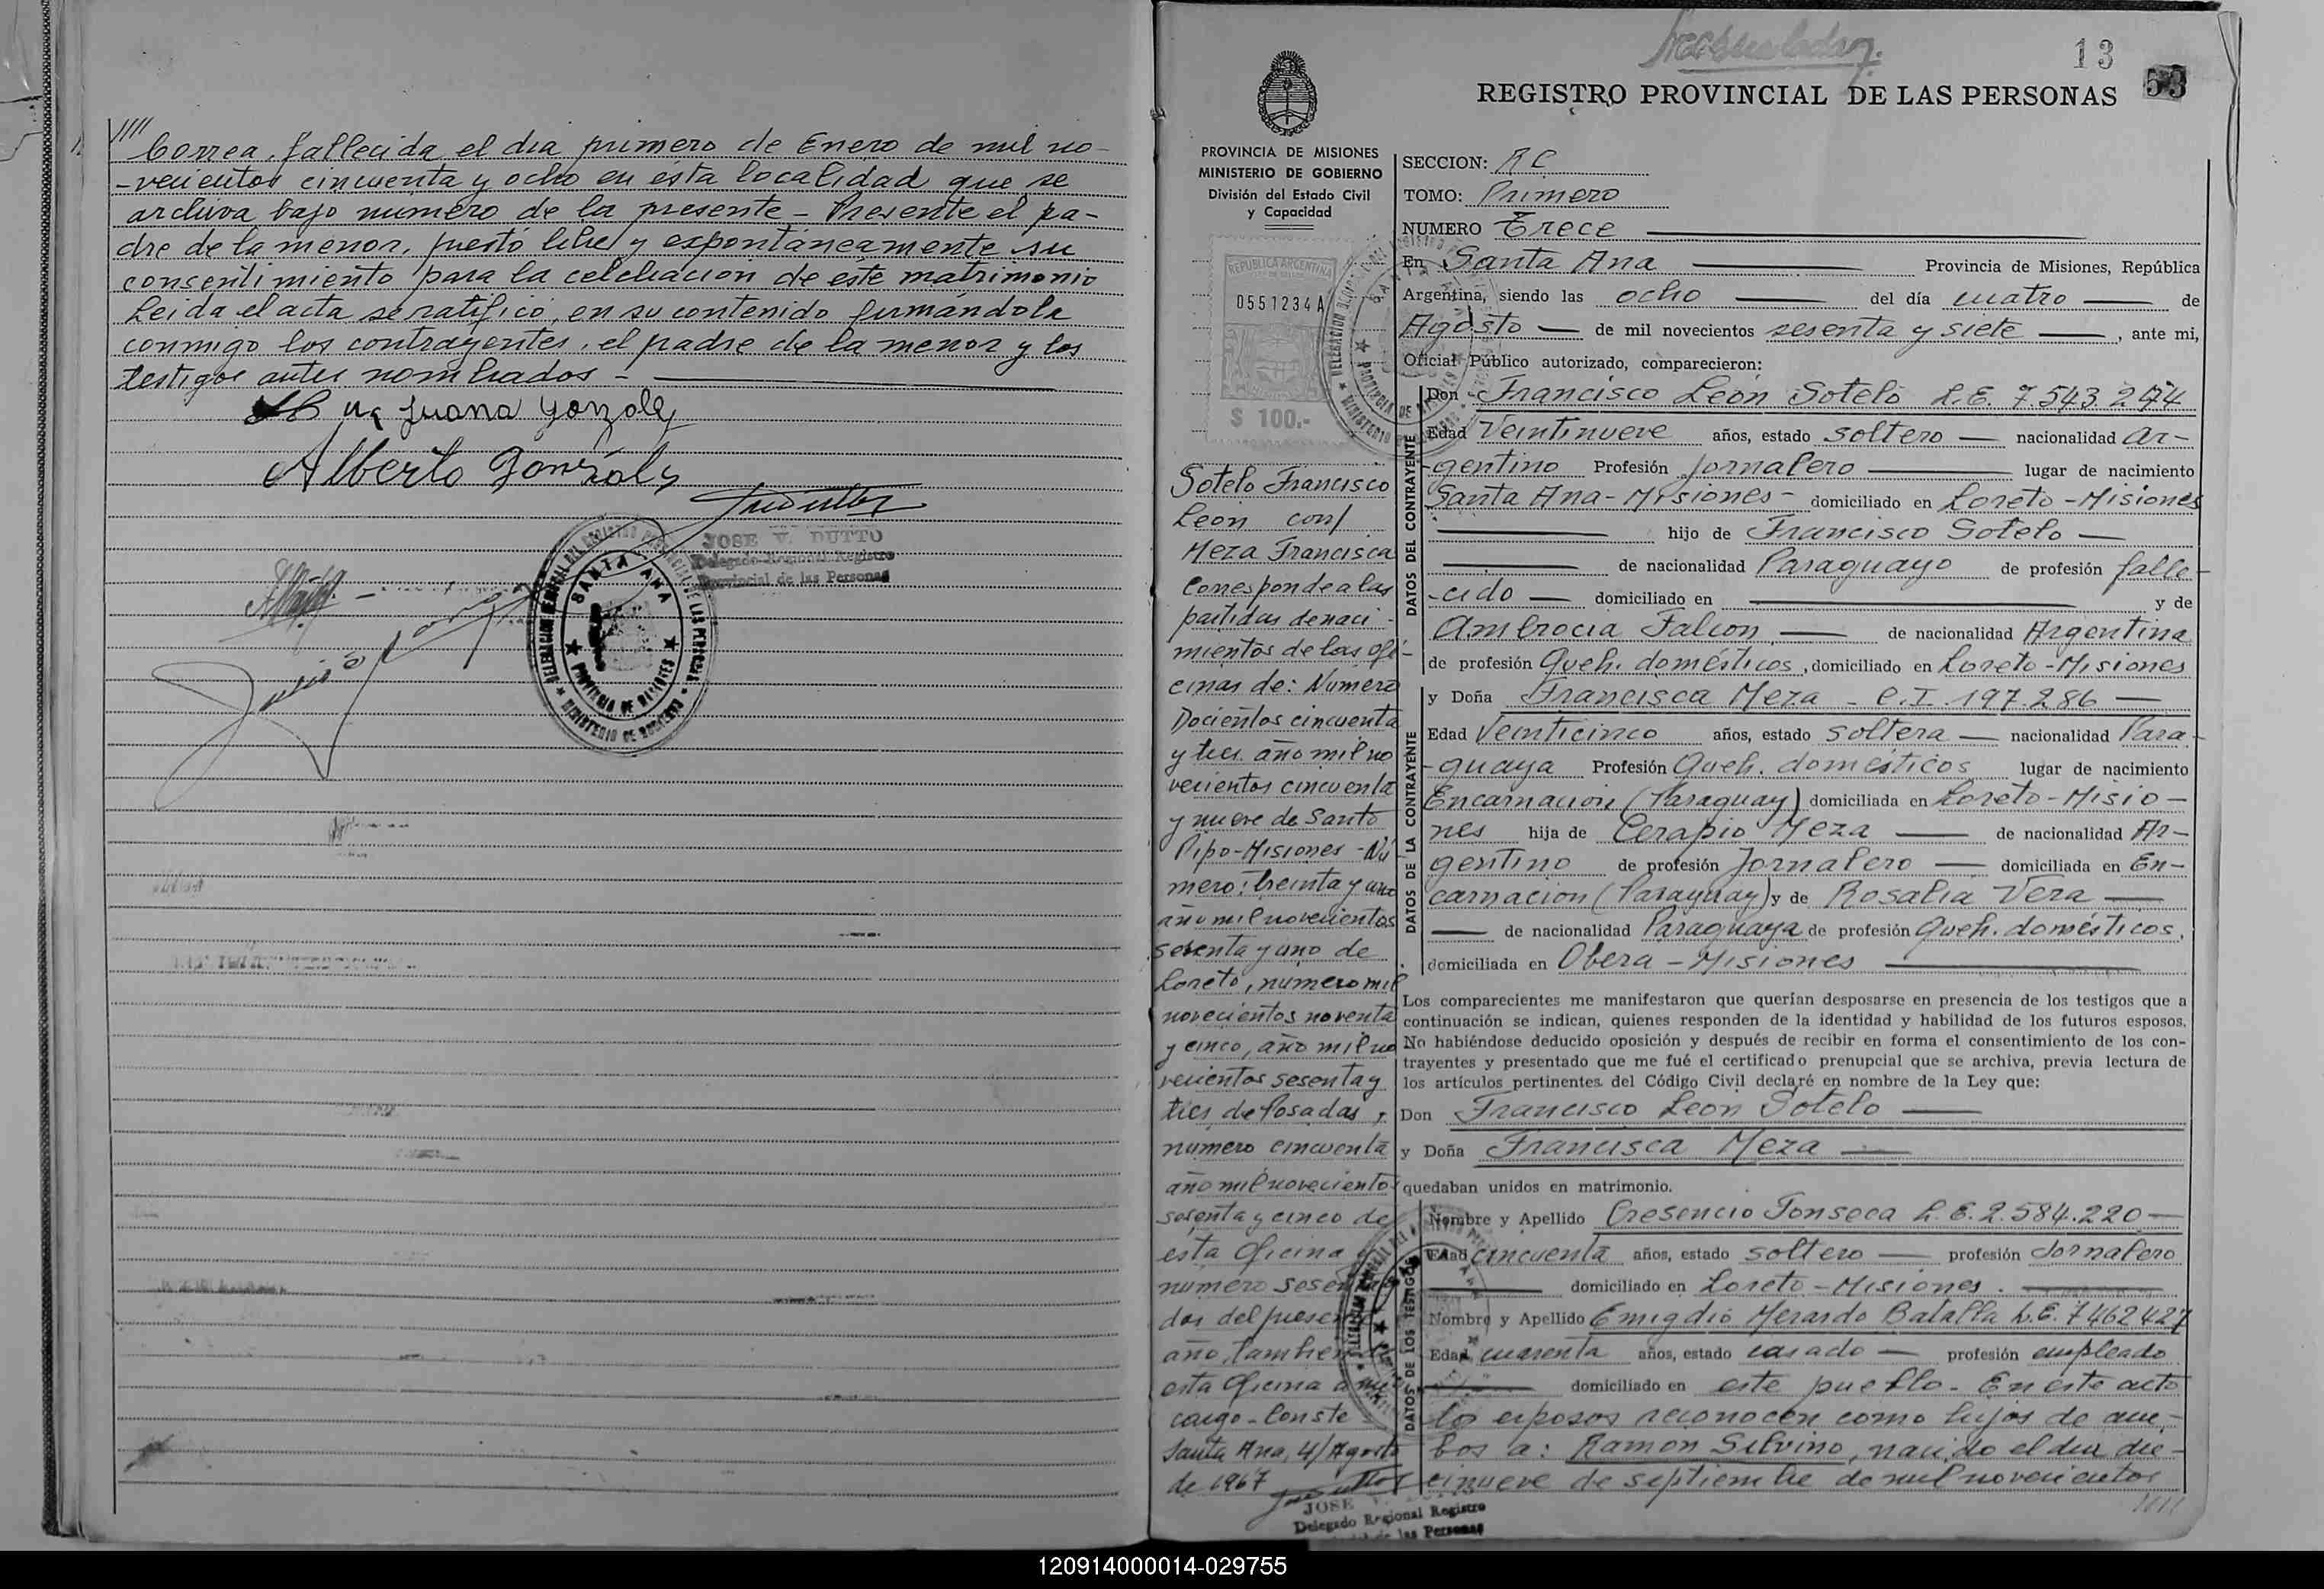 ////
Correa, fallecida el dia primero de Enero de mil no-
-vecientos cincuenta y ocho en ésta localidad que se
archiva bajo numero de la presente - Presente el pa-
dre de la menor, prestó libre y espontáneamente su
consentimiento para la celebración de éste matrimonio
Leida el acta se ratificó en su contenido firmándola
conmigo los contrayentes, el padre de la menor y los
testigos antes nombrados -
Juana Gonzalez
Alberto Gonzalez
JOSE V. DUTTO
Delegado Regional Registro
Provincial de las Personas
SANTA ANA
PROVINCIA DE MISIONES
MINISTERIO DE GOBIERNO
13
53
REGISTRO PROVINCIAL DE LAS PERSONAS
PROVINCIA DE MISIONES
MINISTERIO DE GOBIERNO
División del Estado Civil
y Capacidad
REPUBLICA ARGENTINA
0551234 A
$ 100.-
Sotelo Francisco
Leon con/
Meza Francisca
Corresponde a las
partidas de naci-
mientos de las ofi-
cinas de: Numero
Docientos cincuenta
y tres año mil no
vecientos cincuenta
y nueve de Santo
Pipo-Misiones - Nú
mero: treinta y uno
año mil novecientos
sesenta y uno de
Loreto, numero mil
novecientos noventa
y cinco, año mil no
vecientos sesenta y
tres de Posadas,
número cincuenta
año mil noveciento
sesenta y cinco de
esta Oficina
numero sesen
dos del presen
año, tambien
esta Oficina a mi
cargo - Conste
Santa Ana, 4/Agosto
de 1967
JOSE V. DUTTO
Delegado Regional Registro
de las Personas
SECCION: R C
TOMO: Primero
NUMERO Trece
En Santa Ana Provincia de Misiones, República
Argentina, siendo las ocho del día cuatro de
Agosto de mil novecientos sesenta y siete, ante mi,
Oficial Público autorizado, comparecieron:
DATOS DEL CONTRAYENTE
Don Francisco León Sotelo L.E. 7.543.274
Edad Veintinueve años, estado soltero nacionalidad Ar-
-gentino Profesión Jornalero lugar de nacimiento
Santa Ana - Misiones - domiciliado en Loreto - Misiones
hijo de Francisco Sotelo
de nacionalidad Paraguayo de profesión falle-
-cido domiciliado en y de
Ambrocia Falcon de nacionalidad Argentina
de profesión Queh. domésticos, domiciliado en Loreto - Misiones
DATOS DE LA CONTRAYENTE
y Doña Francisca Meza - C.I. 197.286
Edad Veinticinco años, estado soltera nacionalidad Para-
-guaya Profesión Queh. domésticos lugar de nacimiento
Encarnacion (Paraguay) domiciliada en Loreto - Misio-
nes hija de Cerapio Meza de nacionalidad Ar-
gentino de profesión Jornalero domiciliada en En-
carnacion (Paraguay) y de Rosalia Vera
de nacionalidad Paraguaya de profesión Queh. domésticos,
domiciliada en Obera - Misiones
Los comparecientes me manifestaron que querían desposarse en presencia de los testigos que a
continuación se indican, quienes responden de la identidad y habilidad de los futuros esposos.
No habiéndose deducido oposición y después de recibir en forma el consentimiento de los con-
trayentes y presentado que me fué el certificado prenupcial que se archiva, previa lectura de
los artículos pertinentes del Código Civil declaré en nombre de la Ley que:
Don Francisco Leon Sotelo
y Doña Francisca Meza
quedaban unidos en matrimonio.
DATOS DE LOS TESTIGOS
Nombre y Apellido Cresencio Fonseca L.E. 2.584.220
Edad cincuenta años, estado soltero profesión Jornalero
domiciliado en Loreto - Misiones.
Nombre y Apellido Emigdio Merardo Batalla L.E. 7462427
Edad cuarenta años, estado casado profesión empleado
domiciliado en este pueblo - En este acto
los esposos reconocen como hijos de am-
bos a: Ramon Silvino, nacido el dia die-
cinueve de septiembre de mil novecientos
////
120914000014-029755